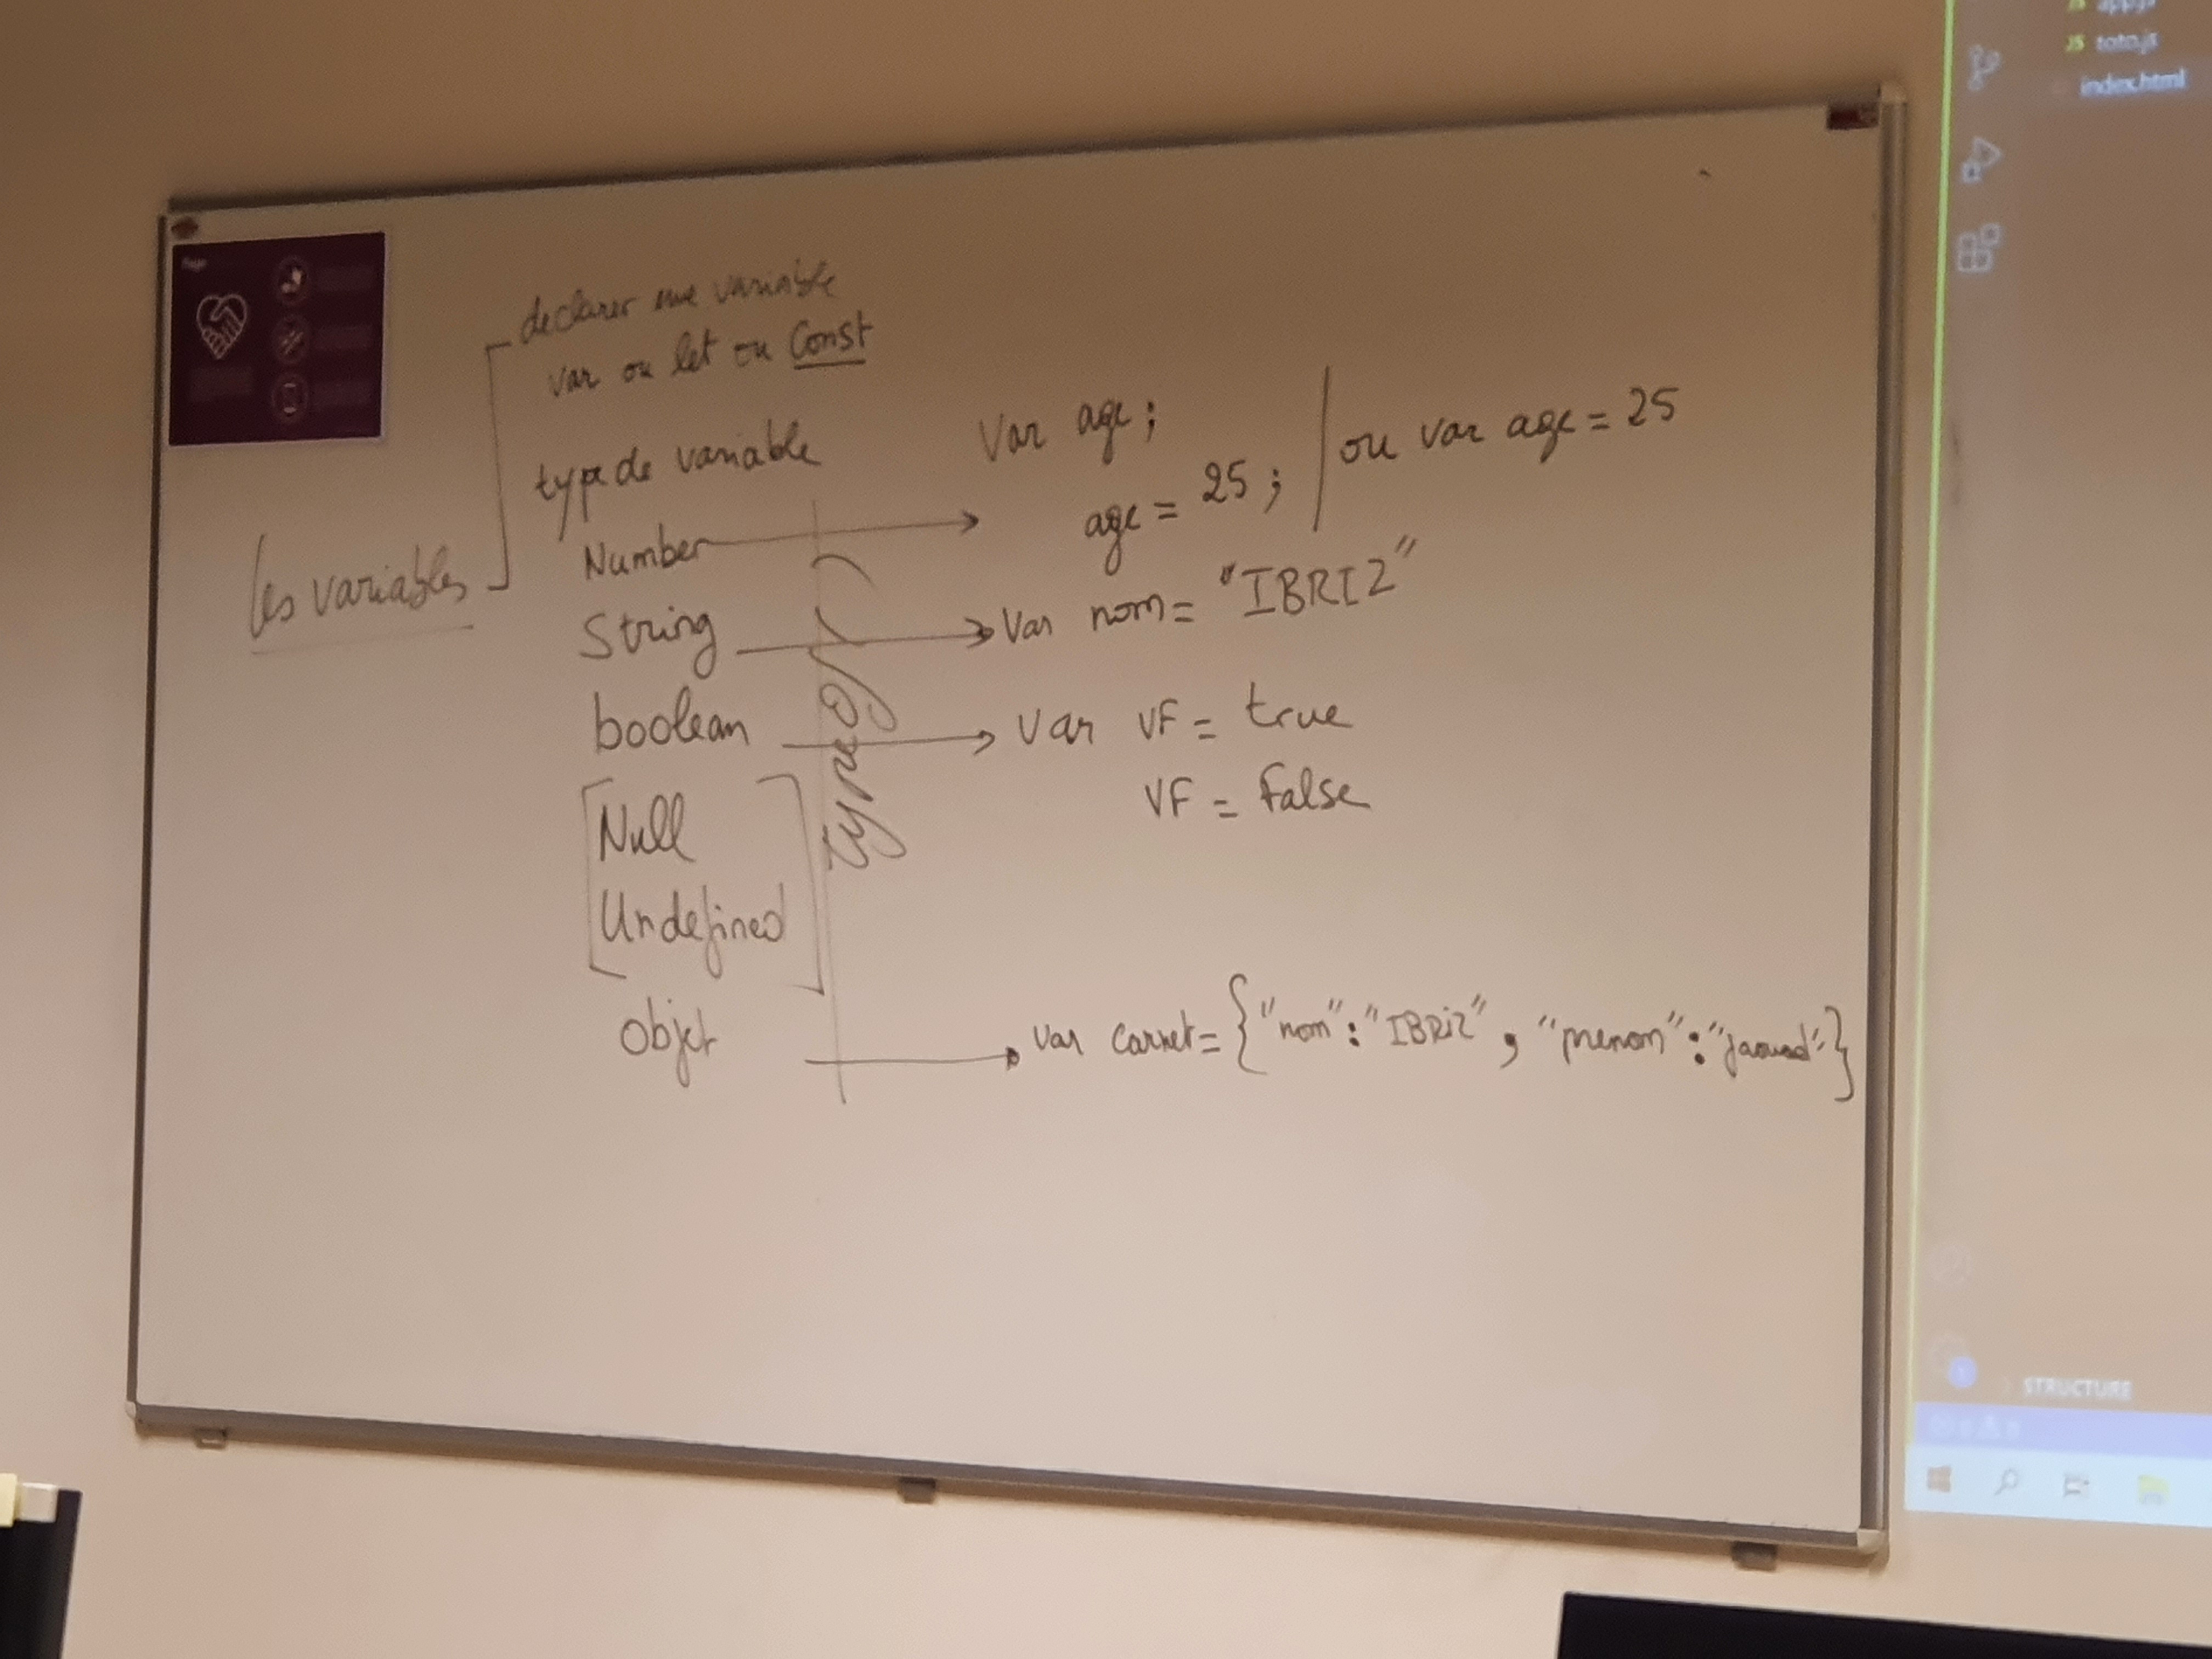 declarer une variable
var ou let ou Const
les variables
type de variable
Number
String
boolean
Null
Undefined
Objet
typeof ( )
Var age;
age = 25;
ou var age = 25
Var nom = "IBRIZ"
Var VF = true
VF = False
Var carnet = {"nom":"IBRiZ", "prenom":"jaouad"}
JS app.js
JS toto.js
index.html
STRUCTURE